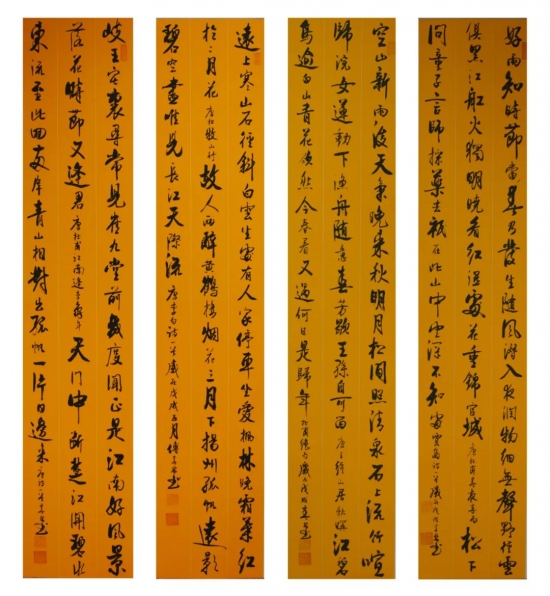 好雨知時節當春乃發生随風潜入夜潤物細無聲野徑雲
俱黑江船火獨明曉看紅湿處花重錦官城唐杜甫春夜喜雨松下
問童子言師採藥去祇在此山中雲深不知處
空山新雨後天氣晚来秋明月松間照清泉石上流竹喧
歸浣女蓮動下漁舟随意春芳歇王孫自可留唐王維山居秋暝江碧
鳥逾白山青花欲然今春看又過何日是歸年
遠上寒山石徑斜白雲生處有人家停車坐愛楓林晚霜葉紅
於二月花唐杜牧山行故人西辭黄鶴樓烟花三月下揚州孤帆遠影
碧空盡唯見長江天際流唐李白詩一首
岐王宅裏尋常見崔九堂前幾度聞正是江南好風景
落花時節又逢君唐杜甫江南逢李龜年天門中断楚江開碧水
東流至此回兩岸青山相對出孤帆一片日邊来